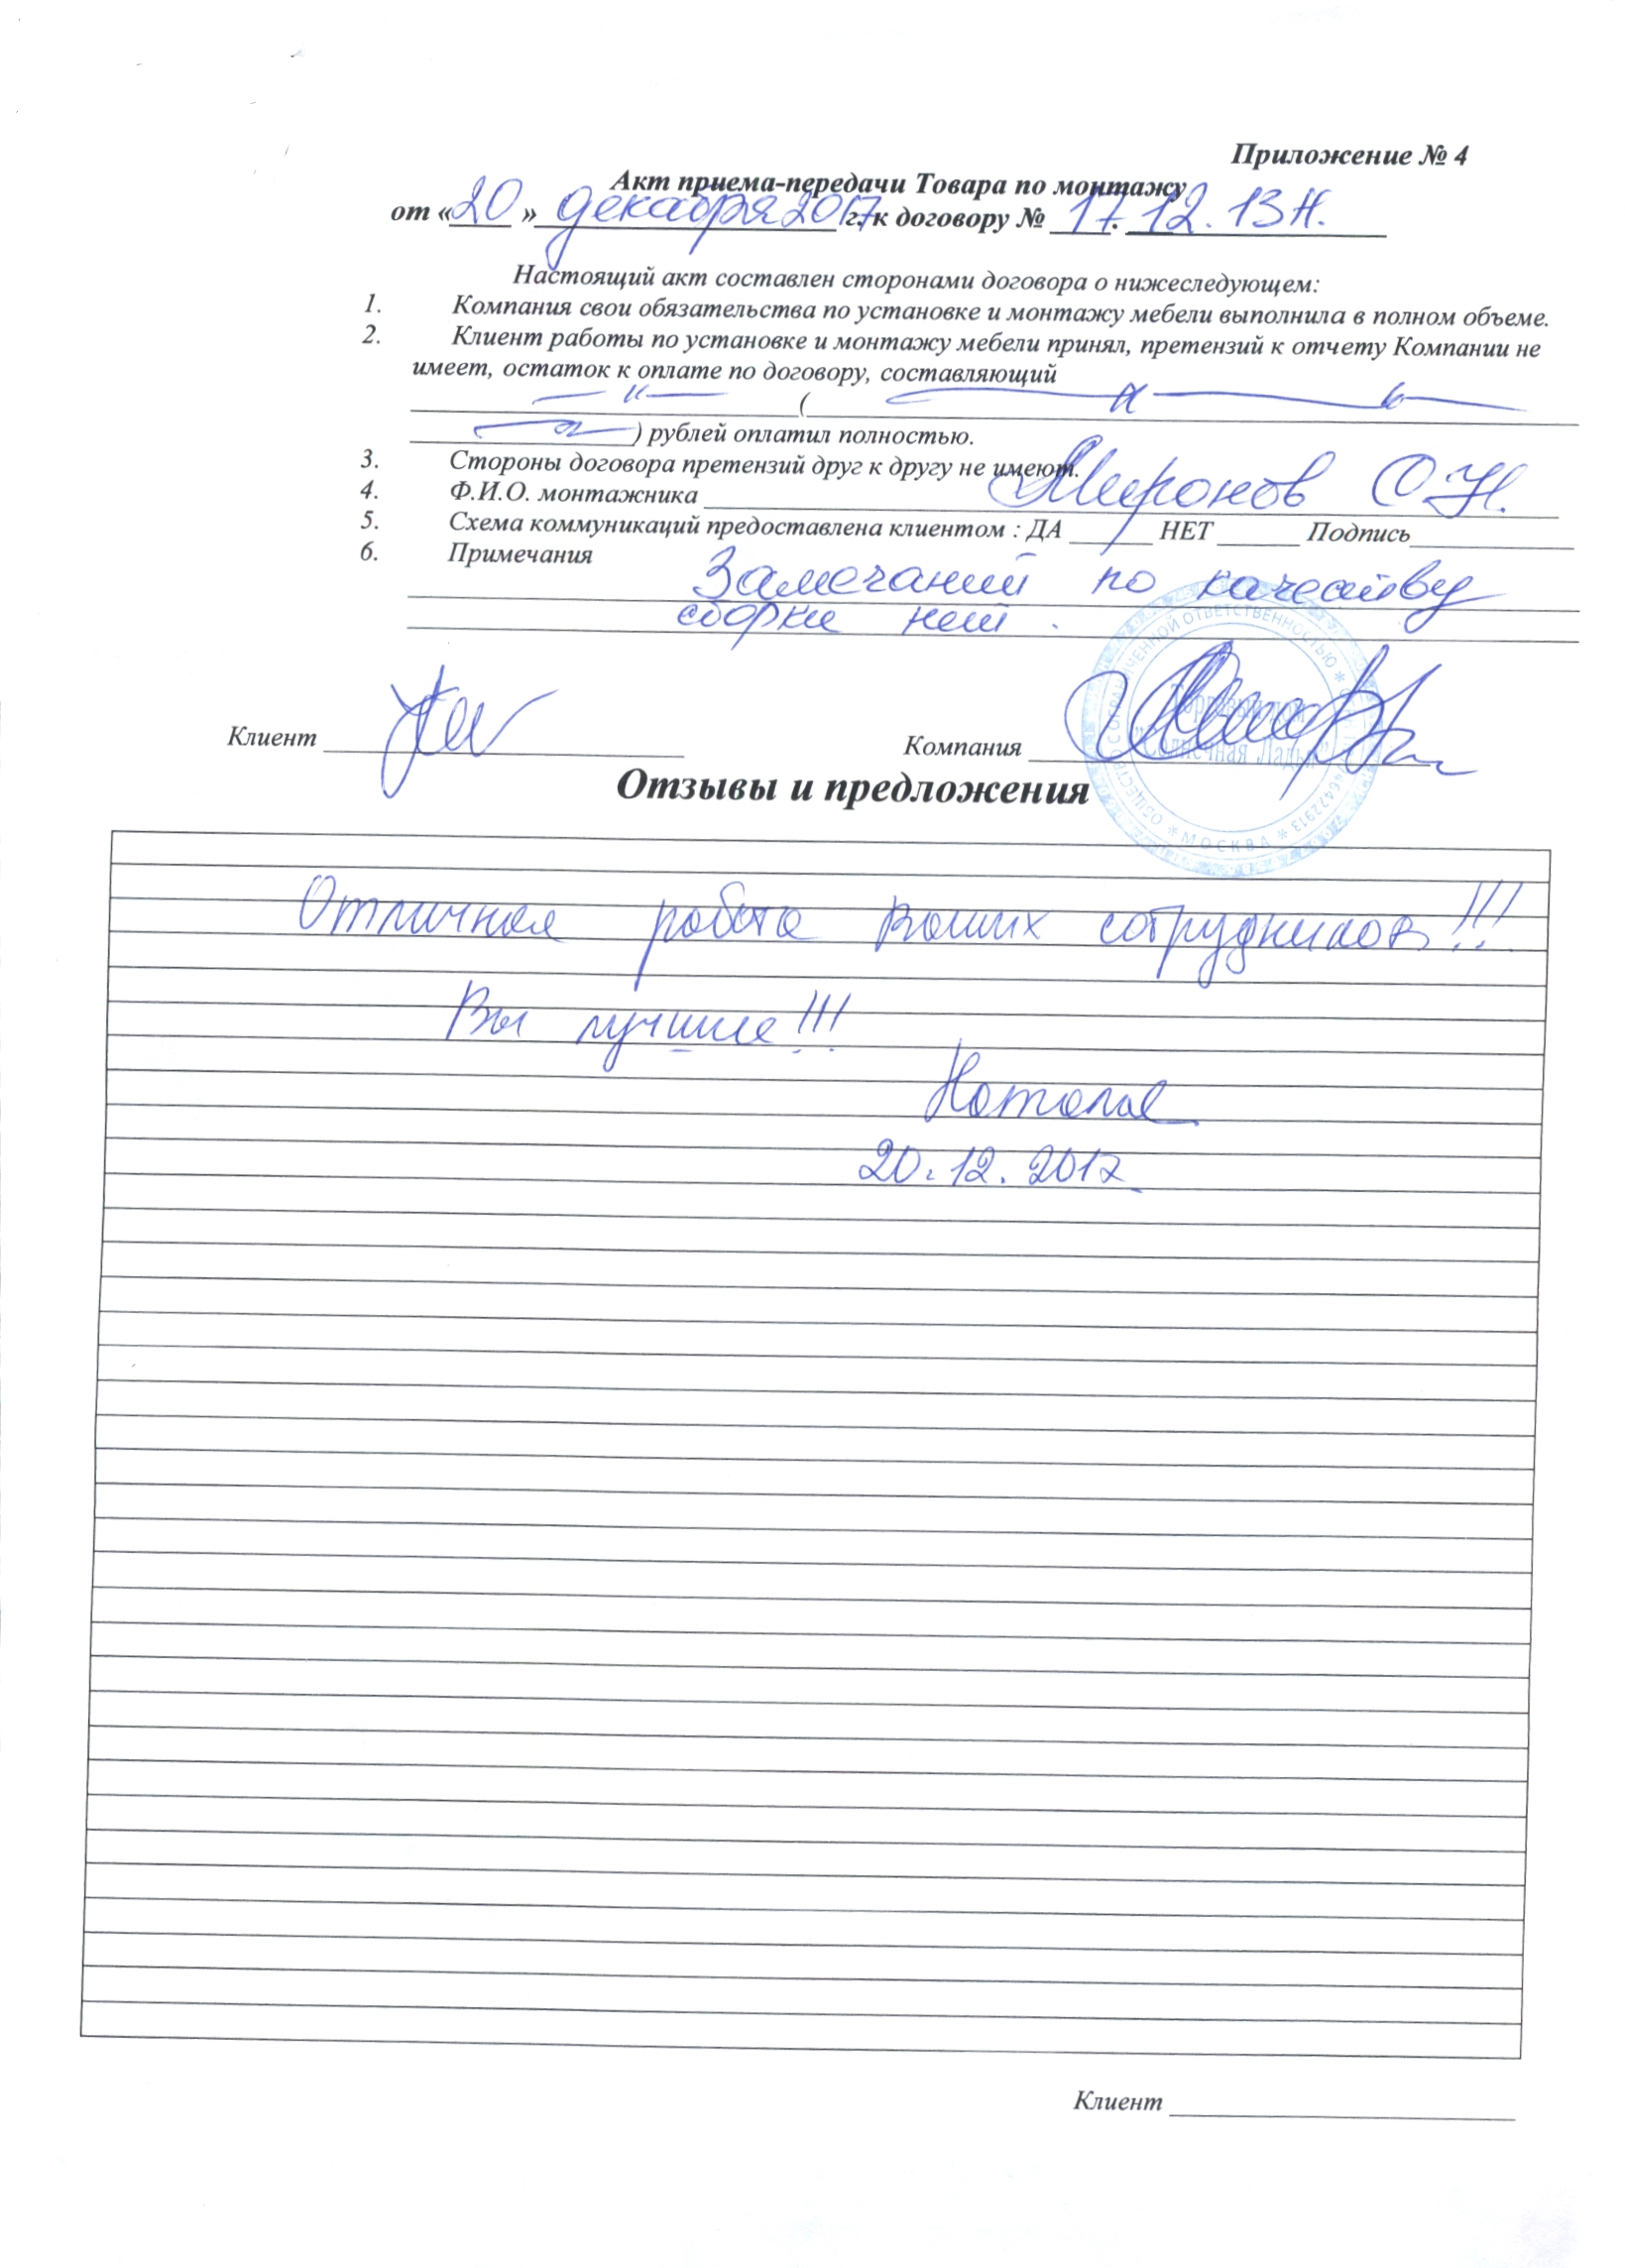 Приложение № 4
Акт приема-передачи Товара по монтажу
от «20» декабря 2017 г. к договору № 17.12.13Н.
Настоящий акт составлен сторонами договора о нижеследующем:
1. Компания свои обязательства по установке и монтажу мебели выполнила в полном объеме.
2. Клиент работы по установке и монтажу мебели принял, претензий к отчету Компании не
имеет, остаток к оплате по договору, составляющий
(
) рублей оплатил полностью.
3. Стороны договора претензий друг к другу не имеют.
4. Ф.И.О. монтажника Миронов О.Н.
5. Схема коммуникаций предоставлена клиентом : ДА НЕТ Подпись
6. Примечания
Замечаний по качеству
сборки нет.
Клиент Компания
ОБЩЕСТВО С ОГРАНИЧЕННОЙ ОТВЕТСТВЕННОСТЬЮ
МОСКВА
Торговый дом
"Солнечная Ладья"
Отзывы и предложения
Отличная работа Ваших сотрудников!!!
Вы лучшие!!!
Наталья
20.12.2017
Клиент